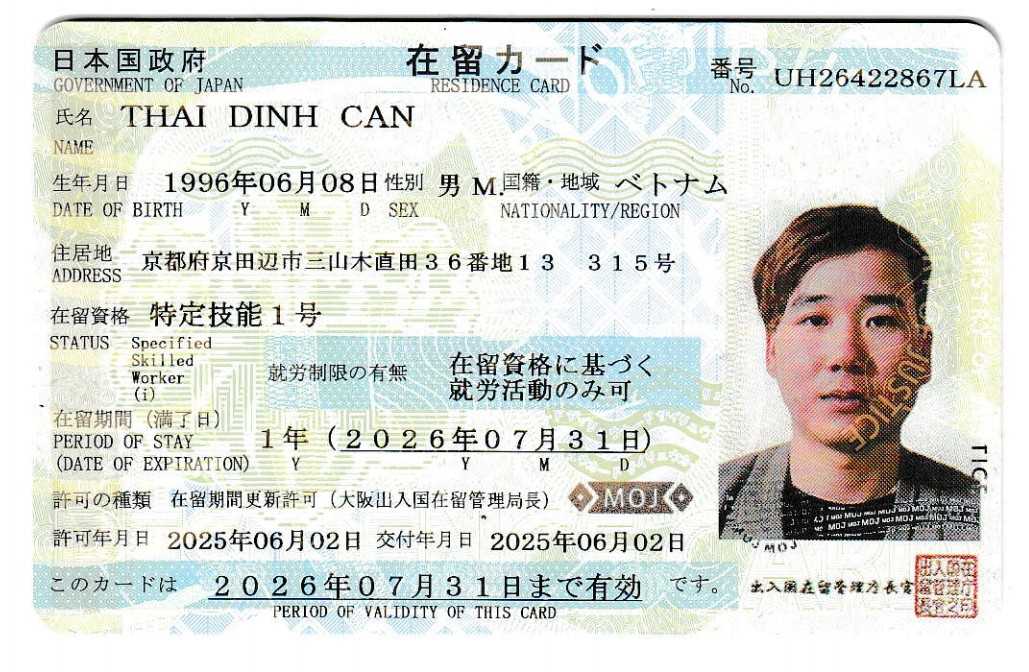 日本国政府 在留カード 番号 UH26422867LA
GOVERNMENT OF JAPAN RESIDENCE CARD No.
氏名 THAI DINH CAN
NAME
生年月日 1996年06月08日 性別 男 M. 国籍・地域 ベトナム
DATE OF BIRTH Y M D SEX NATIONALITY/REGION
住居地 京都府京田辺市三山木直田36番地13 315号
ADDRESS
在留資格 特定技能1号
STATUS Specified
Skilled
Worker
(i)
就労制限の有無 在留資格に基づく
就労活動のみ可
在留期間(満了日)
PERIOD OF STAY 1年(2026年07月31日)
(DATE OF EXPIRATION) Y Y M D
許可の種類 在留期間更新許可(大阪出入国在留管理局長) MOJ
許可年月日 2025年06月02日 交付年月日 2025年06月02日
このカードは 2026年07月31日まで有効 です。
PERIOD OF VALIDITY OF THIS CARD
出入国在留管理庁長官
JUSTICE
MOJ MOJ